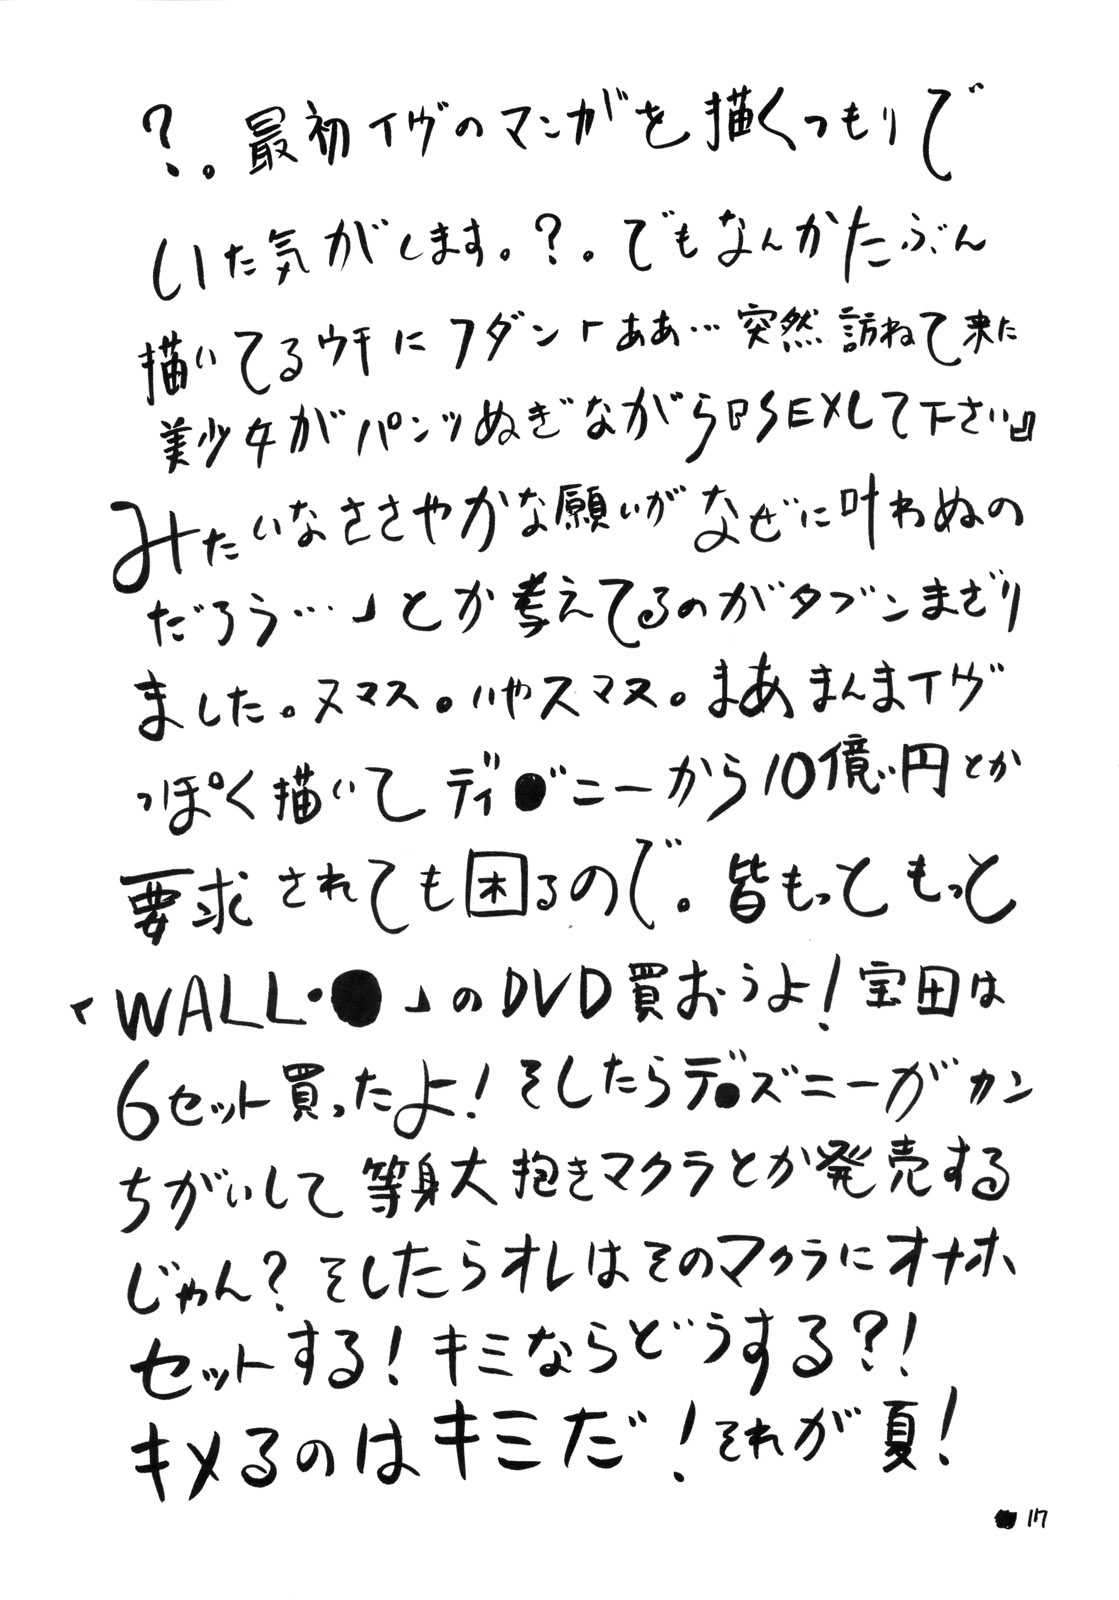 ?。最初イヴのマンガを描くつもりで
いた気がします。?。でもなんかたぶん
描いてるウチにフダン「ああ…突然訪ねて来た
美少女がパンツぬぎながら『SEXして下さい』
みたいなささやかな願いがなぜに叶わぬの
だろう…」とか考えてるのがタブンまざり
ました。ヌマス。いやスマヌ。まあまんまイヴ
っぽく描いてディ●゛ニーから10億円とか
要求されても困るので。皆もっともっと
「WALL・●」のDVD買おうよ!宝田は
6セット買ったよ!そしたらデ●ズニーがカン
ちがいして等身大抱きマクラとか発売する
じゃん?そしたらオレはそのマクラにオナホ
セットする!キミならどうする?!
キメるのはキミだ!それが夏!
17